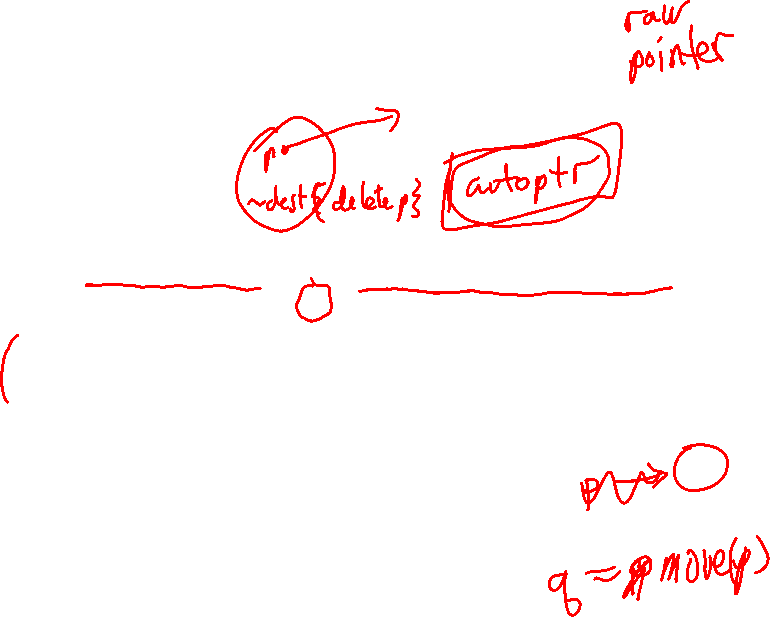 raw
pointer
p
~dest{delete p}
autoptr
p
q = move(p)